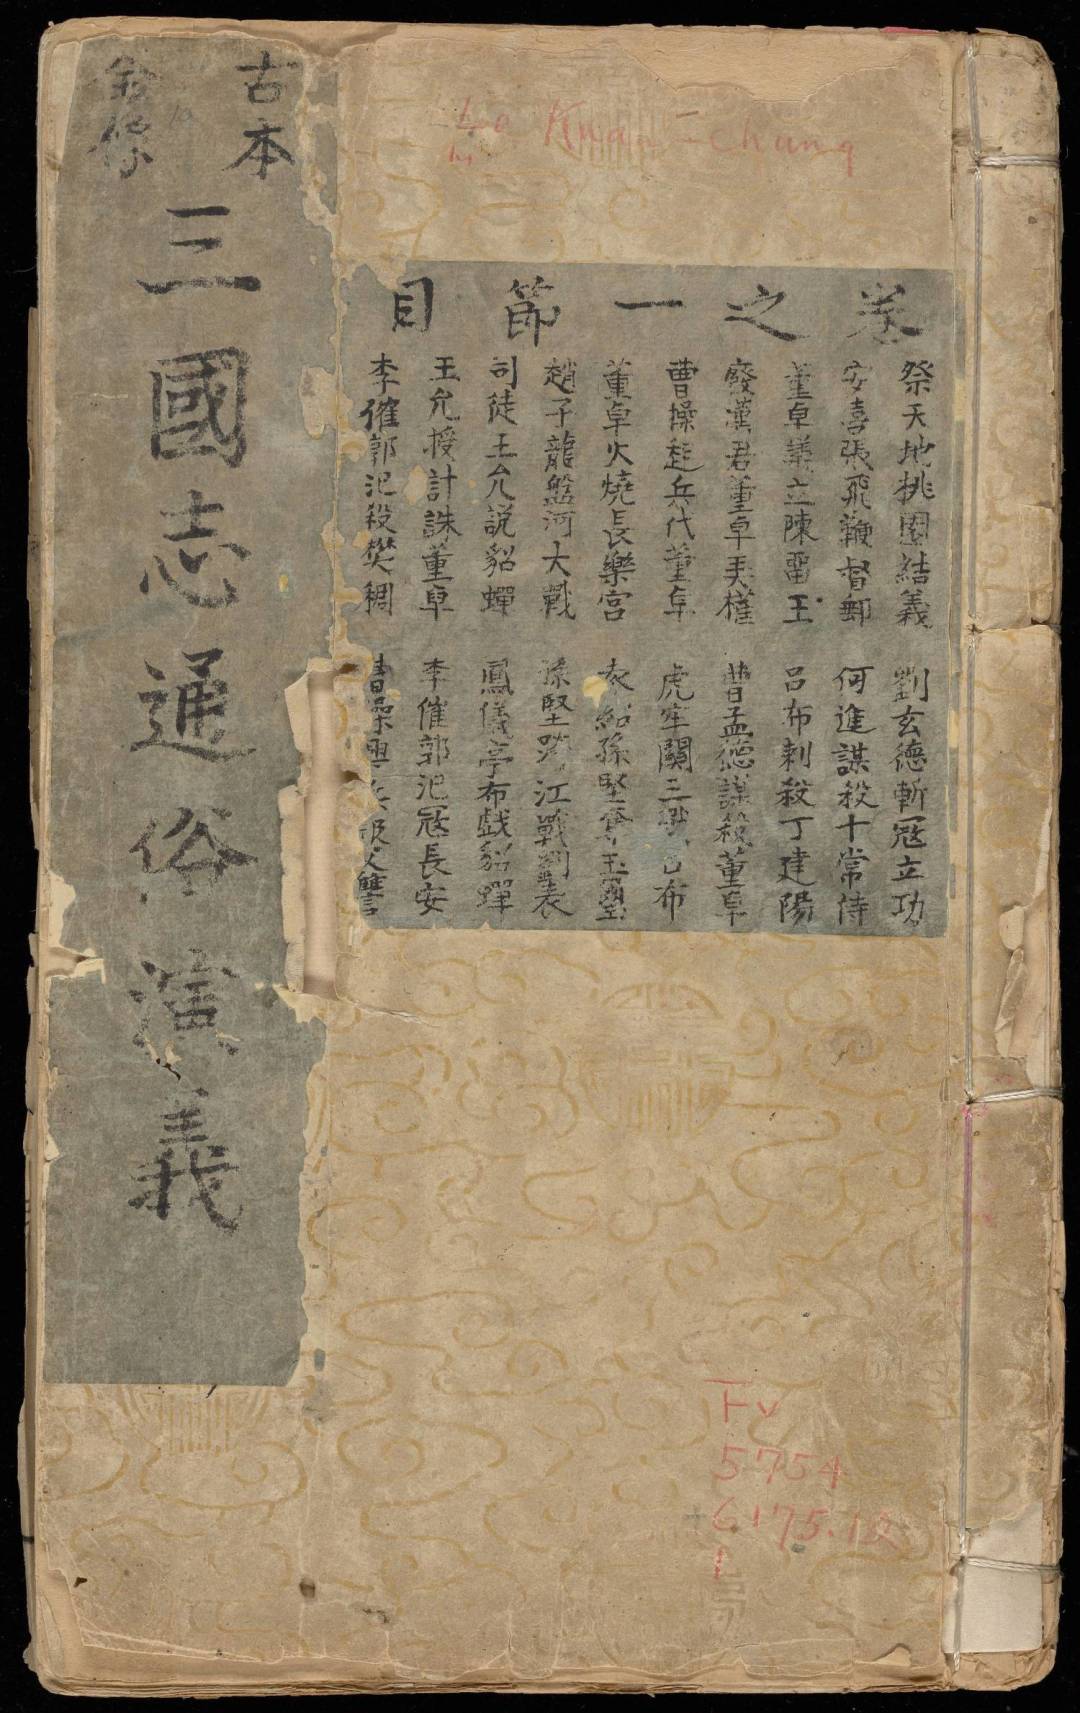 古本
全像
三國志通俗演義
Lo Kuan-chung
卷之一節目
祭天地桃園結義
劉玄德斬寇立功
安喜張飛鞭督郵
何進謀殺十常侍
董卓議立陳留王
呂布刺殺丁建陽
廢漢君董卓弄權
曹孟德謀殺董卓
曹操起兵伐董卓
虎牢關三戰呂布
董卓火燒長樂宮
袁紹孫堅奪玉璽
趙子龍盤河大戰
孫堅跨江戰劉表
司徒王允説貂蟬
鳳儀亭布戲貂蟬
王允授計誅董卓
李傕郭汜寇長安
李傕郭汜殺樊稠
曹操興兵報父讐
Fv
5754
6175.12
1